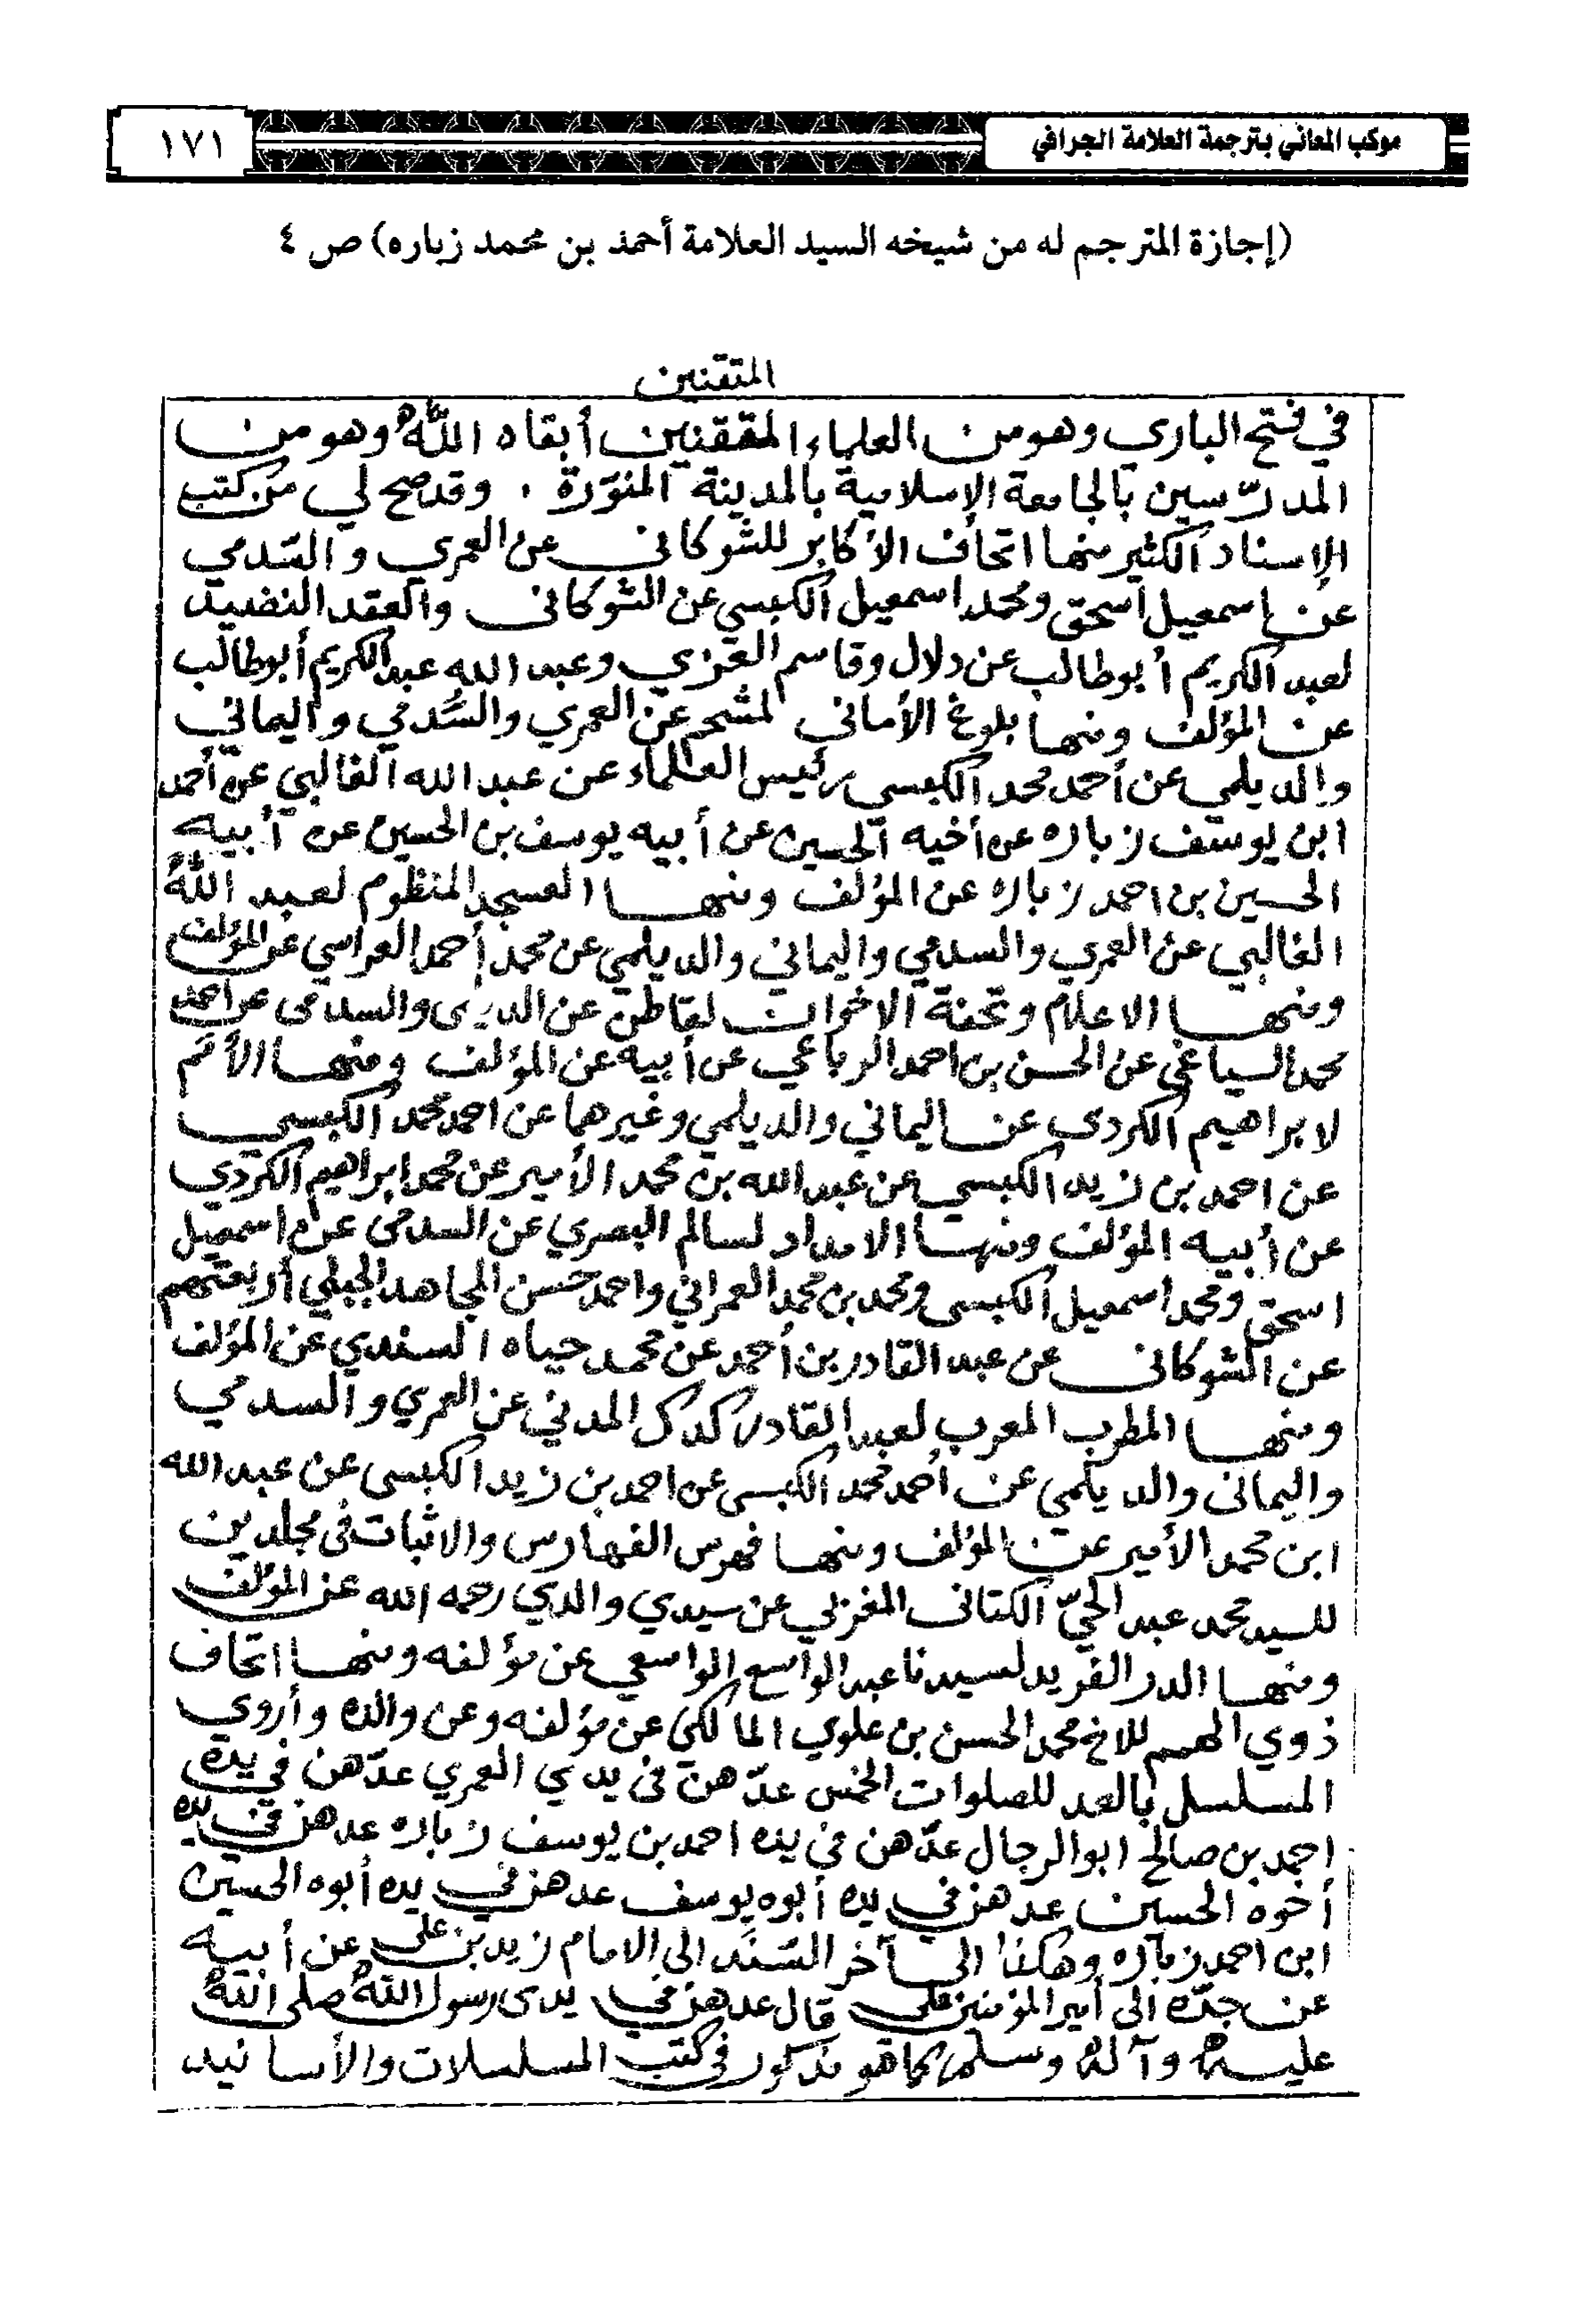 موكب المعاني بترجمة العلامة الجرافي
١٧١
(إجازة المترجم له من شيخه السيد العلامة أحمد بن محمد زباره) ص ٤
المتقنين
في فتح الباري وهو من العلماء المتقنين أبقاه الله وهو من
المدرّسين بالجامعة الإسلامية بالمدينة المنوّرة . وقد صح لي من كتب
الإسناد الكثير منها اتحاف الأكابر للشوكاني عن العمري والسّدمي
عن اسمعيل اسحق ومحمد اسمعيل الكبسي عن الشوكاني والعقد النضيد
لعبد الكريم أبو طالب عن دلال وقاسم العزي وعبد الله عبد الكريم أبو طالب
عن المؤلف ومنها بلوغ الأماني لمشحم عن العمري والسُّدمي واليماني
والديلمي عن أحمد محمد الكبسي رئيس العلماء عن عبد الله الغالبي عن أحمد
ابن يوسف زباره عن أخيه الحسين عن أبيه يوسف بن الحسين عن أبيه
الحسين بن احمد زباره عن المؤلف ومنها العسجد المنظوم لعبد الله
الغالبي عن العمري والسدمي واليماني والديلمي عن محمد أحمد العراسي عن المؤلف
ومنها الاعلام وتحفة الاخوان لقاطن عن والسدمي عن احمد
محمد السياغي عن الحسن بن احمد الرباعي عن أبيه عن المؤلف ومنها الأمم
لابراهيم الكردي عن اليماني والديلمي وغيرهما عن احمد محمد الكبسي
عن احمد بن زيد الكبسي عن عبد الله بن محمد الأمير عن محمد ابراهيم الكردي
عن أبيه المؤلف ومنها الامداد لسالم البصري عن السدمي عن اسمعيل
اسحق ومحمد اسمعيل الكبسي ومحمد بن محمد العمراني واحمد حسن المجاهد الجبلي أربعتهم
عن الشوكاني عن عبد القادر بن أحمد عن محمد حياه السندي عن المؤلف
ومنها المطرب المعرب لعبد القادر كدك المدني عن العمري والسدمي
واليماني والديلمي عن أحمد محمد الكبسي عن احمد بن زيد الكبسي عن عبد الله
ابن محمد الأمير عن المؤلف ومنها فهرس الفهارس والاثبات في مجلدين
للسيد محمد عبد الحيّ الكتاني المغربي عن سيدي والدي رحمه الله عن المؤلف
ومنها الدر الفريد لسيدنا عبد الواسع الواسعي عن مؤلفه ومنها اتحاف
ذوي الهمم للاخ محمد الحسن بن علوي المالكي عن مؤلفه وعن والده وأروي
المسلسل بالعد للصلوات الخمس عدّهن في يدي العمري عدّهن في يده
احمد بن صالح ابو الرجال عدّهن في يده احمد بن يوسف زباره عدهن في يده
أخوه الحسين عدهن في يده أبوه يوسف عدهن في يده أبوه الحسين
ابن احمد زباره وهكذا إلى آخر السَّنَد الى الامام زيد بن علي عن أبيه
عن جدّه الى أمير المؤمنين علي قال عدهن في يدي رسول الله صلى الله
عليه وآله وسلم كما هو مذكور في كتب المسلسلات والأسانيد